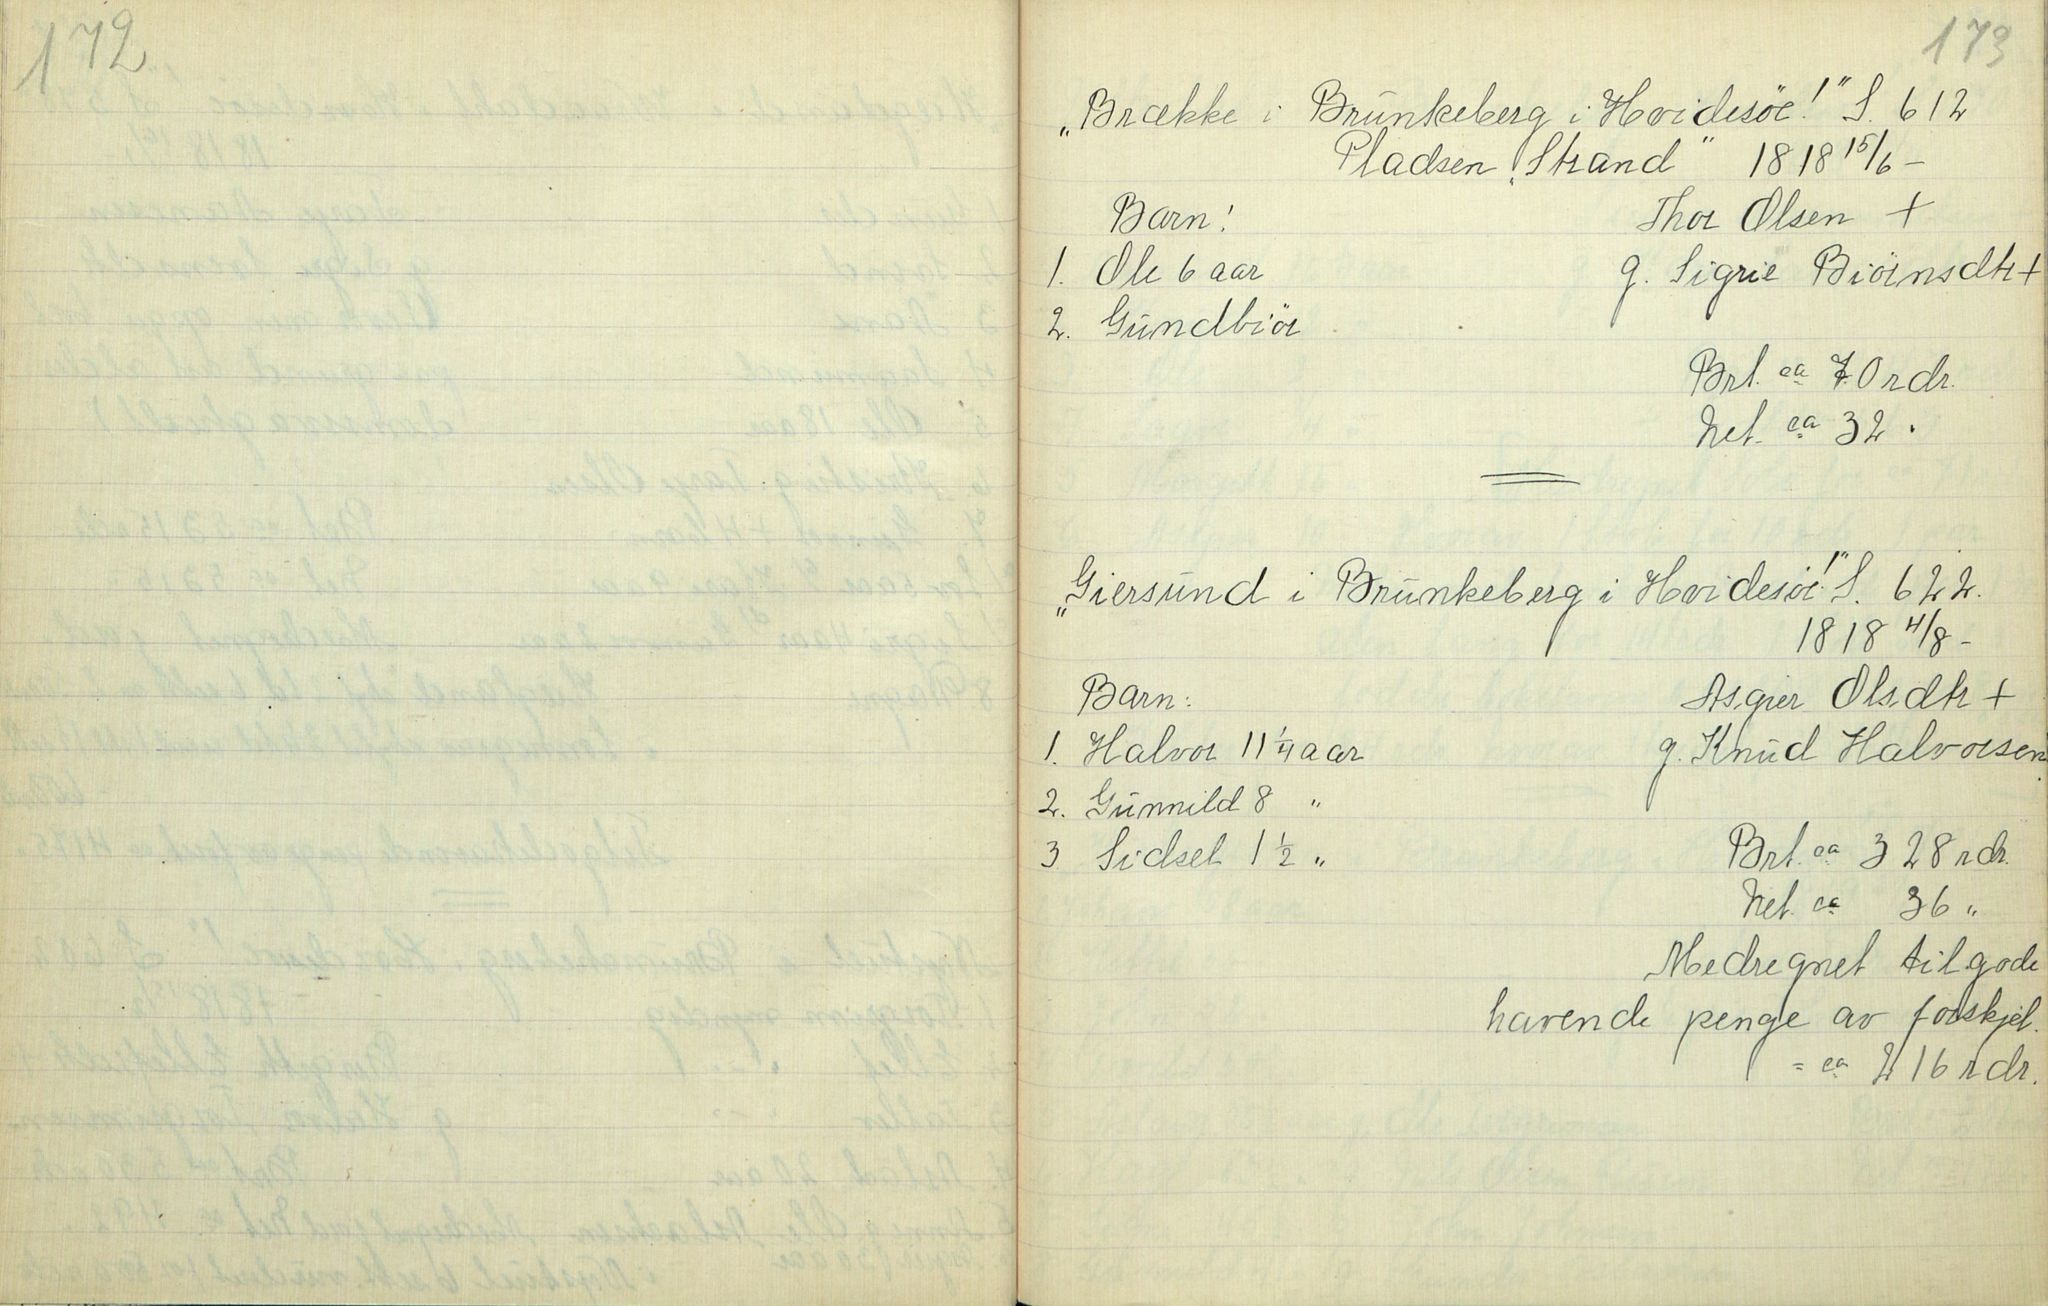 172
173
"Brække i Brünkeberg i Hvidesöe!" S. 612
Pladsen "Strand" 1818 15/6 -
Barn!
Thor Olsen +
1. Ole 6 aar
g. Sigrie Biörnsdtr +
2. Gündbiör
Brt. ca 70 rdr.
Net. ca 32 "
"Giersünd i Brünkeberg i Hvidesöe!" S. 622.
1818 4/8 -
Barn:
Asgier Olsdtr +
1. Halvor 11 1/4 aar
g. Knüd Halvorsen.
2. Günnild 8 "
3 Sidsel 1 1/2 "
Brt. ca 328 rdr.
Net. ca 36 "
Medregnet tilgode
havende penge av forskjel.
= ca 216 rdr.